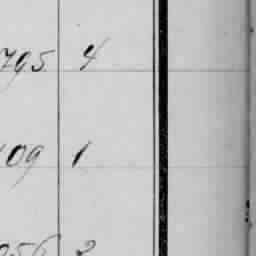 795 4
109 1
056 2